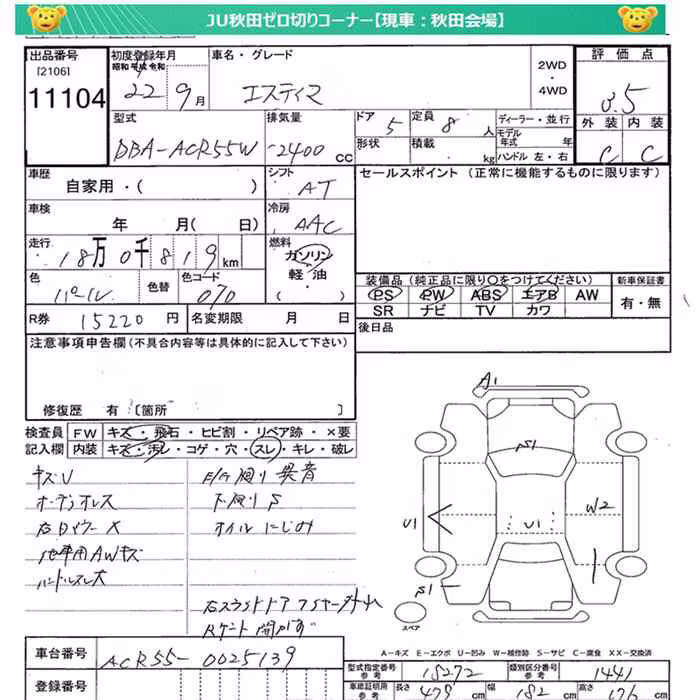 JU秋田ゼロ切りコーナー【現車：秋田会場】
出品番号
[2106]
11104
初度登録年月
昭和 平成 令和
22 9月
車名・グレード
エスティマ
2WD
・
4WD
評価点
3.5
外装 内装
C C
型式
DBA-ACR55W
排気量
2400cc
ドア 5
定員 8人
形状
積載 kg
ディーラー・並行
モデル年式 年
ハンドル 左・右
車歴
自家用・( )
シフト
AT
セールスポイント (正常に機能するものに限ります)
車検
年 月( 日)
冷房
AAC
走行
18万0千819km
燃料
ガソリン
軽油
( )
色
パール
色替
色コード
070
装備品 (純正品に限り○をつけてください)
PS PW ABS エアB AW
SR ナビ TV カワ
新車保証書
有・無
R券 15220円
名変期限 月 日
後日品
注意事項申告欄 (不具合内容等は具体的に記入して下さい)
修復歴 有 〔箇所 〕
検査員記入欄
FW キズ・飛石・ヒビ割・リペア跡・×要
内装 キズ・汚レ・コゲ・穴・スレ・キレ・破レ
キズU
オーディオレス
右Dイワー×
他車用AWキズ
ハンドルスレ大
E/G廻り異音
下廻りS
オイルにじみ
右スライドドア
A1
S1
U1
U1
W2
S1
スペア
A-キズ E-エクボ U-凹み W-補修跡 S-サビ C-腐食 XX-交換済
車台番号
ACR55-0025139
登録番号
型式指定番号
参考
15272
類別区分番号
参考
1441
車庫証明用
参考
長さ 479cm
幅 182cm
高さ 176cm